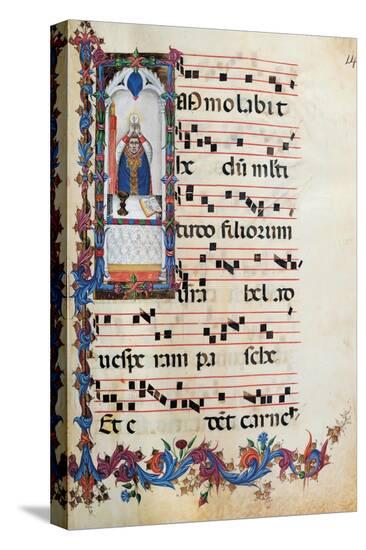 M molabit
he dũ mlti
tudo filiorum
isra hel ad
uespe ram pa sche
Et e dẽt carnes